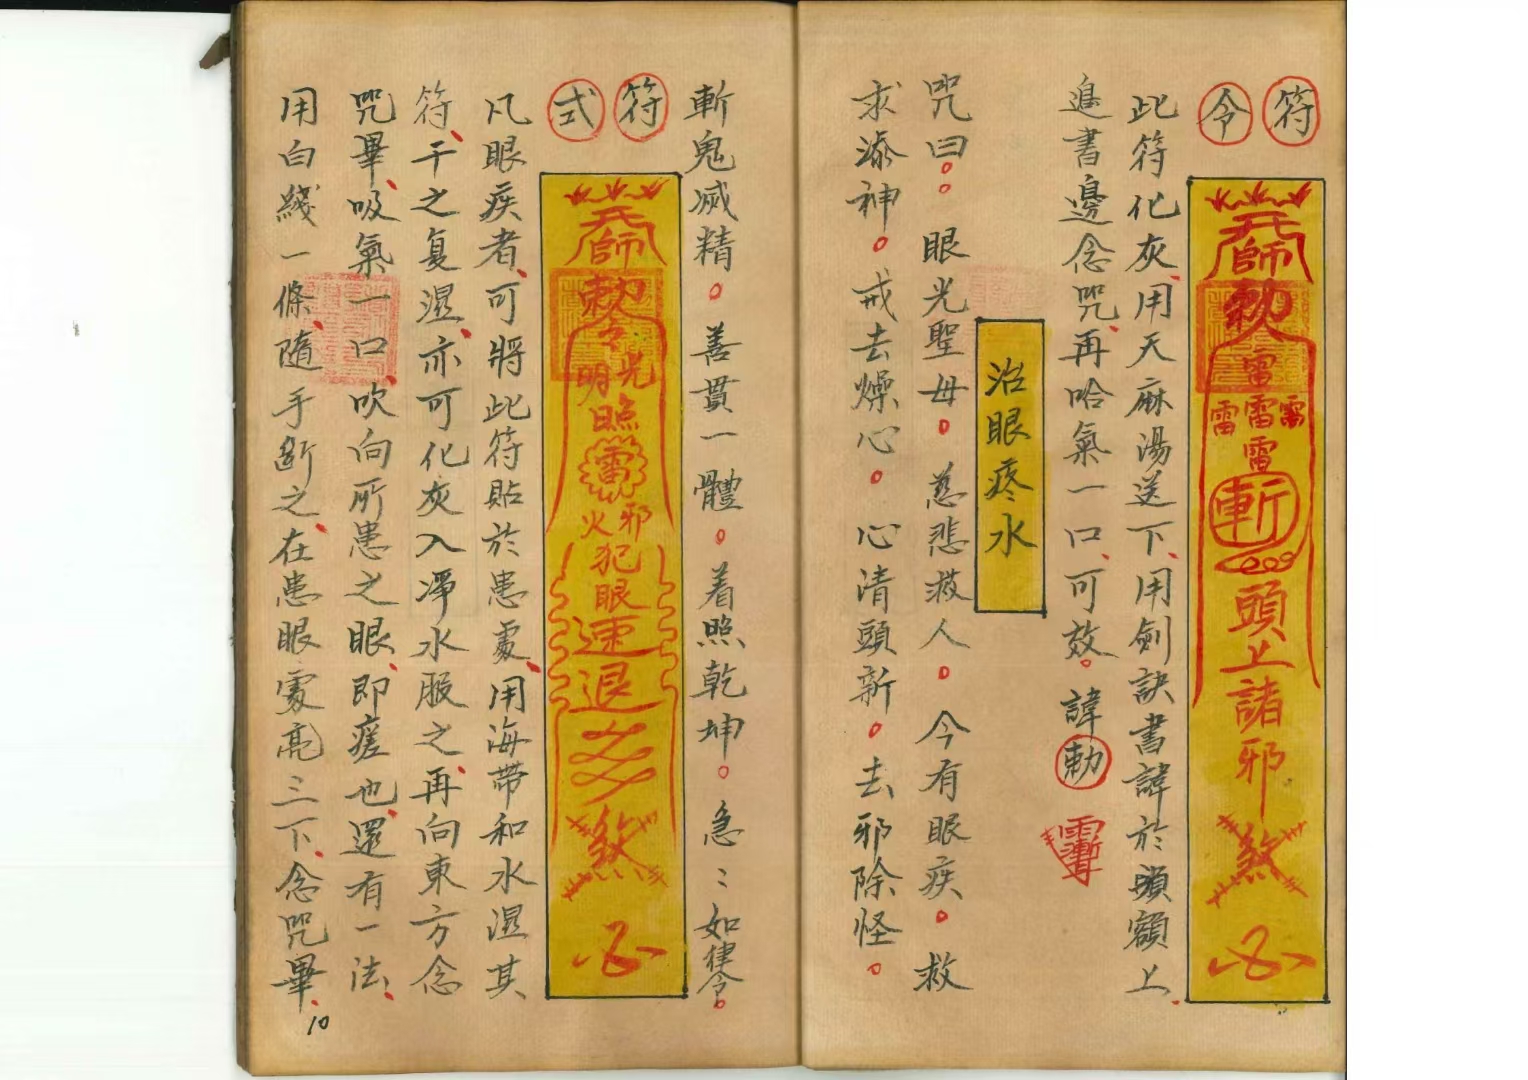 符令
天師
敕
雷
雷雷雷
雷
斬
頭上諸邪
煞
此符化灰、用天麻湯送下、用劍訣書諱於頭額上、
邊書邊念咒、再哈氣一口、可效。諱勅
治眼疼水
咒曰。。眼光聖母。慈悲救人。今有眼疾。救
求添神。戒去燥心。心清頭新。去邪除怪。
斬鬼滅精。善貫一體。着照乾坤。急::如律令。
符式
天師
敕令
光明
照
雷
火邪
犯眼
速退
煞
凡眼疾者、可將此符貼於患處、用海帶和水濕其
符、干之复濕、亦可化灰入凈水服之、再向東方念
咒畢、吸氣一口、吹向所患之眼、即瘥也、還有一法、
用白綫一條、隨手斷之、在患眼處亮三下、念咒畢、
10